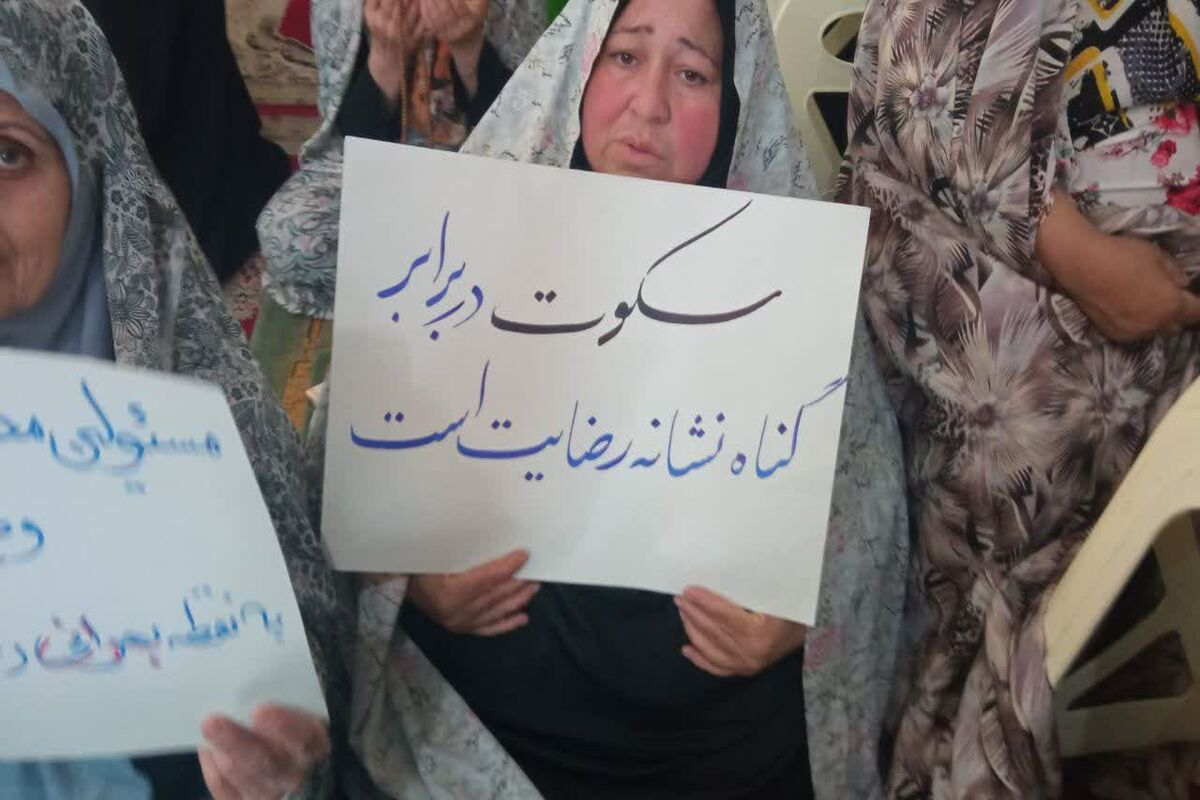 سکوت در برابر
گناه نشانه رضایت است
مسئولی
به نقطه بحرانی